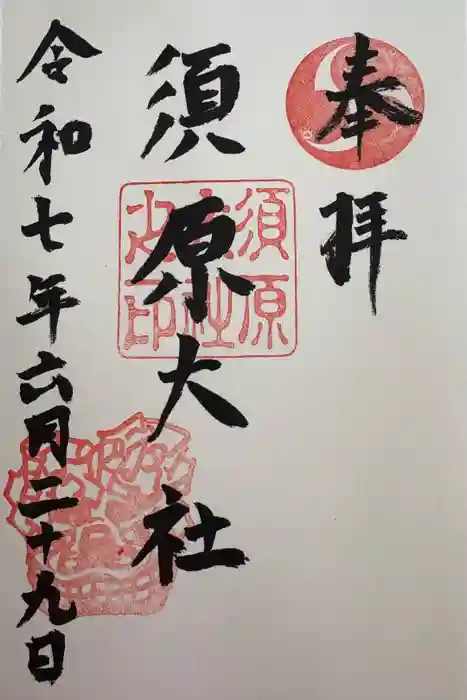 奉拝
須原大社
須原
大社
之印
令和七年六月二十九日